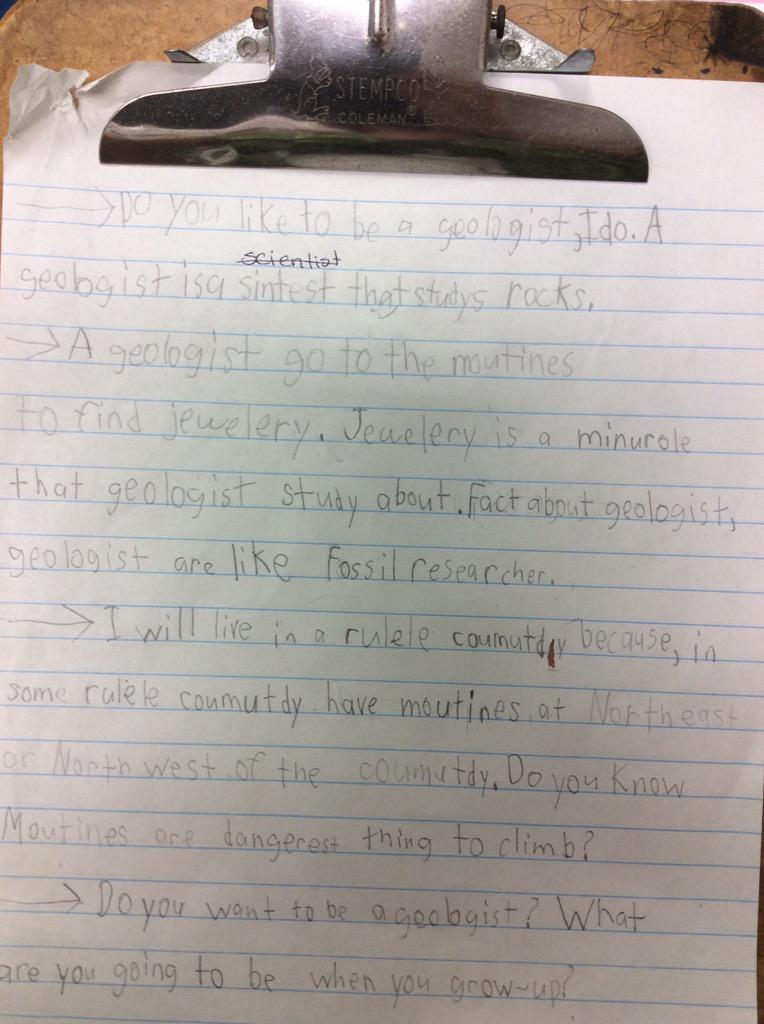 STEMPCO
COLEMAN
Do you like to be a geologist, I do. A
scientist
geologist is a sintest that studys rocks.
A geologist go to the moutines
to find jewelery. Jewelery is a minurole
that geologist study about. Fact about geologist,
geologist are like Fossil researcher.
I will live in a rulele coumutdy because, in
some rulele coumutdy have moutines at Northeast
or North west of the coumutdy. Do you Know
Moutines are dangerest thing to climb?
Do you want to be a geologist? What
are you going to be when you grow-up?